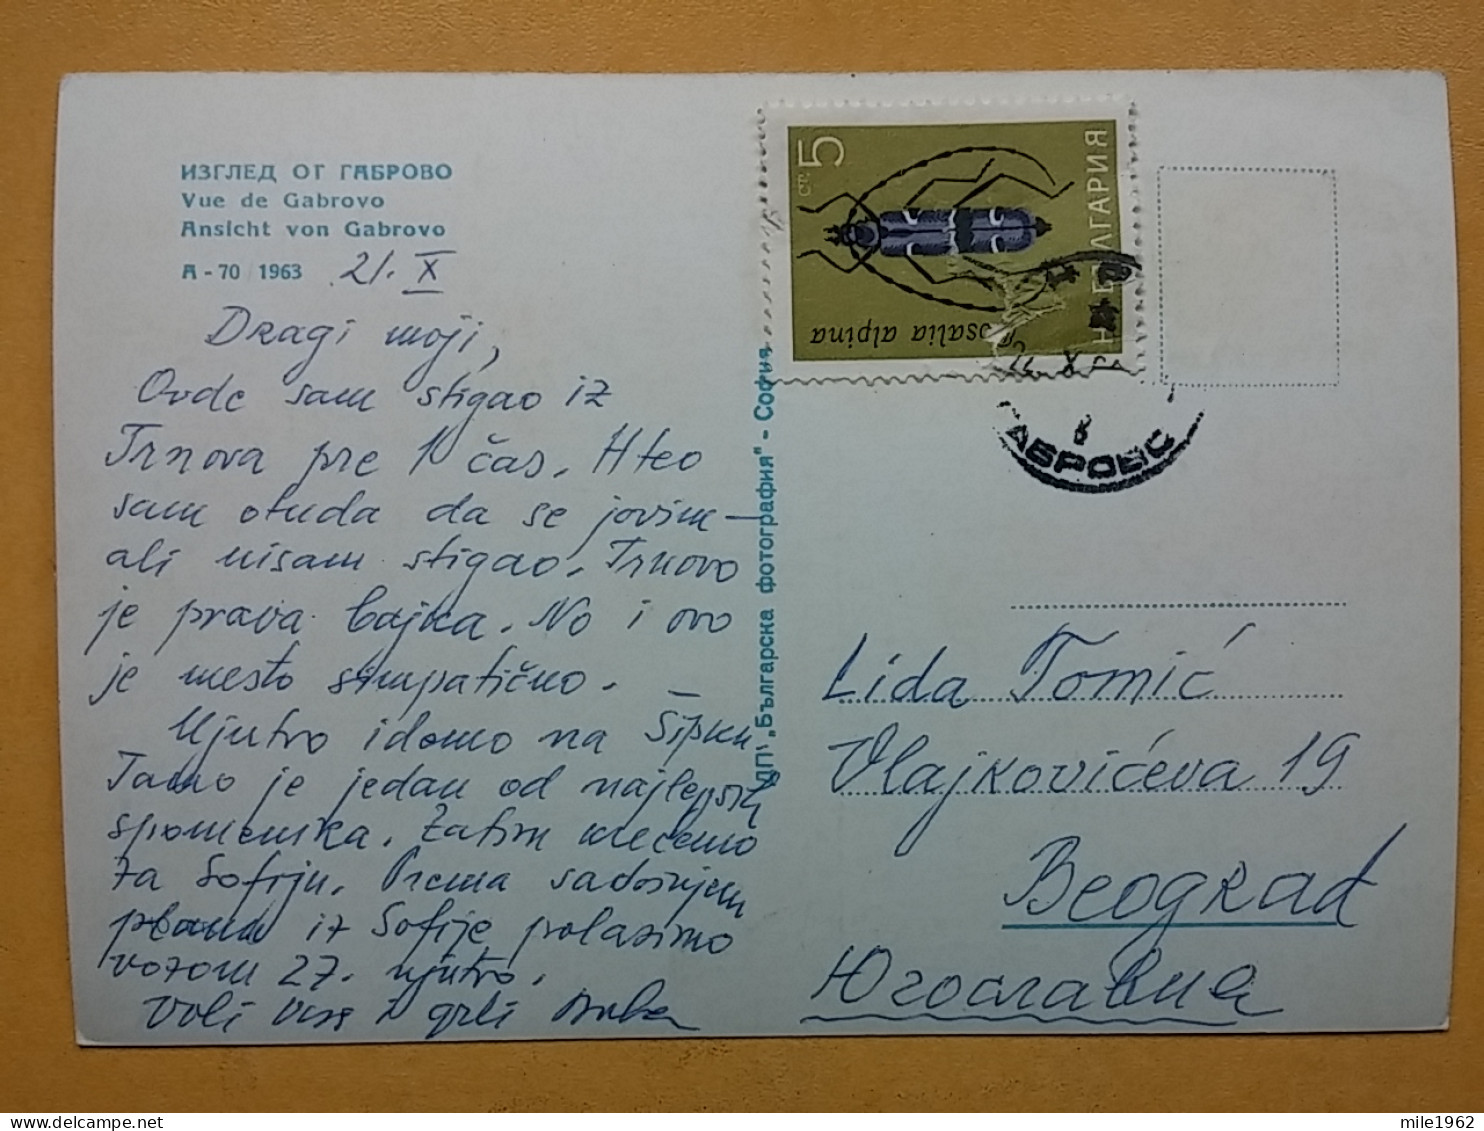 ИЗГЛЕД ОТ ГАБРОВО
Vue de Gabrovo
Ansicht von Gabrovo
A - 70 / 1963 21. X
Dragi moji,
Ovde sam stigao iz
Trnova pre 1 čas. Hteo
sam otuda da se jovim —
ali nisam stigao. Trnovo
je prava bajka. No i ovo
je mesto simpatično. —
Ujutro idemo na Šipku
Tamo je jedan od najlepših
spomenika. Zatim krećemo
za Sofiju. Prema sadašnjem
planu iz Sofije polazimo
vozom 27. ujutro.
Voli Vas i grli
ДП "Българска фотография" - София
5 СТ.
БЪЛГАРИЯ
Rosalia alpina
Lida Tomić
Vlajkovićeva 19
Beograd
Югославия
mile1962